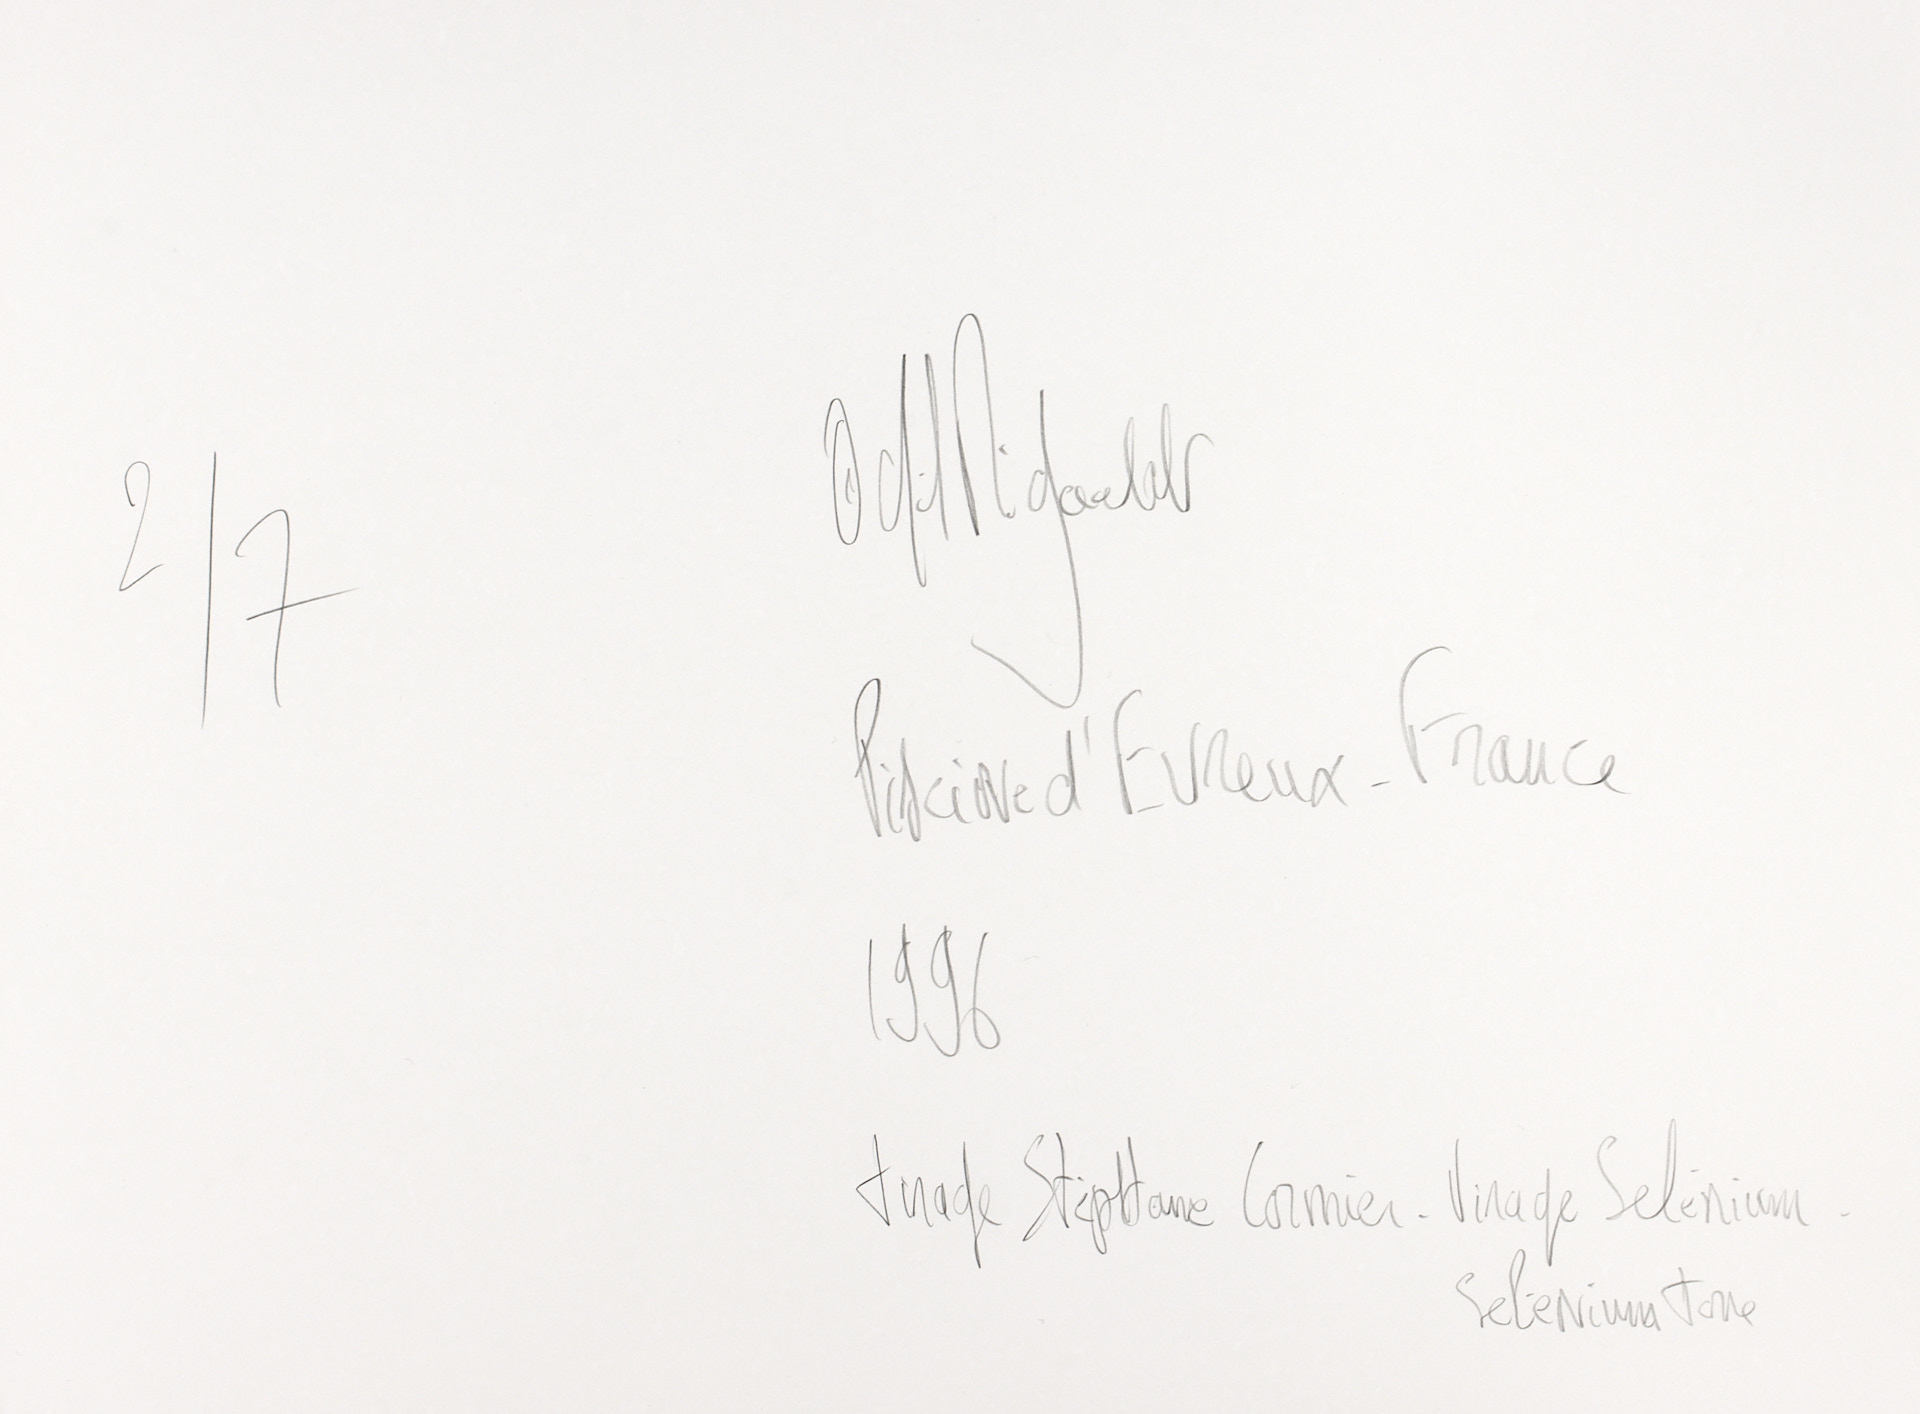 2/7
Piscine d'Evreux - France
1996
tirage Stéphane Cormier - Virage Sélénium -
Selenium tone